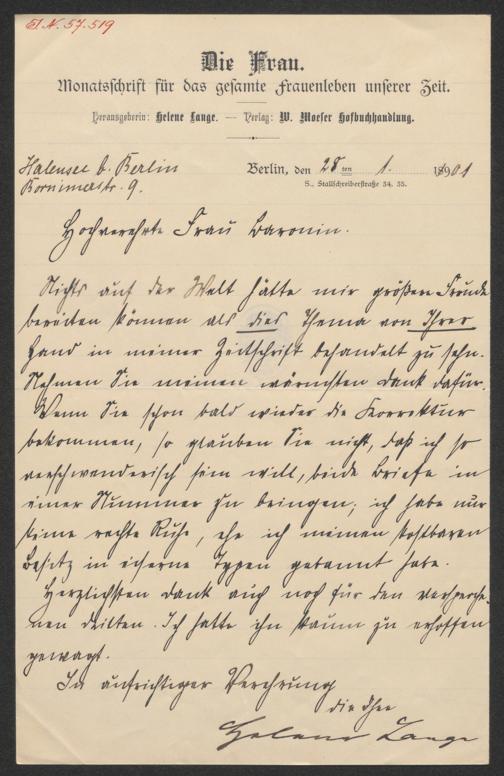 I. N. 57.519
Die Frau.
Monatsschrift für das gesamte Frauenleben unserer Zeit.
Herausgeberin: Helene Lange. — Verlag: W. Moeser Hofbuchhandlung.
Halensee b. Berlin
Berlin, den 28ten 1. 1901
Bornimerstr. 9.
S., Stallschreiberstraße 34. 35.
Hochverehrte Frau Baronin.
Nichts auf der Welt hätte mir größere Freude
bereiten können als dies Thema von Ihrer
Hand in meiner Zeitschrift behandelt zu sehn.
Nehmen Sie meinen wärmsten Dank dafür.
Wenn Sie schon bald wieder die Korrektur
bekommen, so glauben Sie nicht, daß ich so
verschwenderisch sein will, beide Briefe in
einer Nummer zu bringen; ich habe nur
keine rechte Ruhe, ehe ich meinen kostbaren
Besitz in eiserne Typen gebannt habe.
Herzlichsten Dank auch noch für den versproche-
nen dritten. Ich hatte ihn kaum zu erhoffen
gewagt.
In aufrichtiger Verehrung
die Ihre
Helene Lange